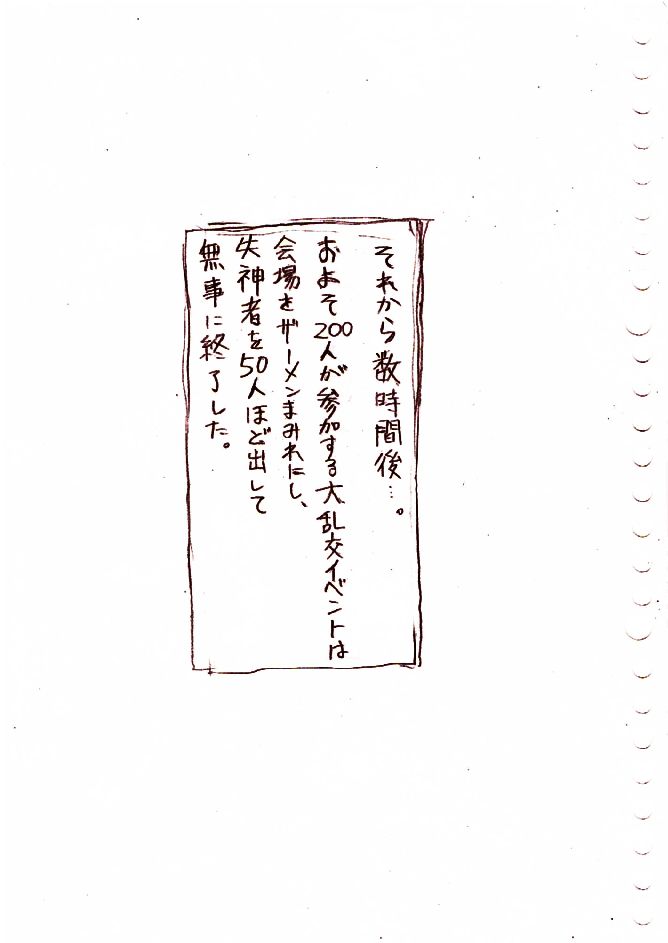 それから数時間後…。
およそ200人が参加する大乱交イベントは
会場をザーメンまみれにし、
失神者を50人ほど出して
無事に終了した。